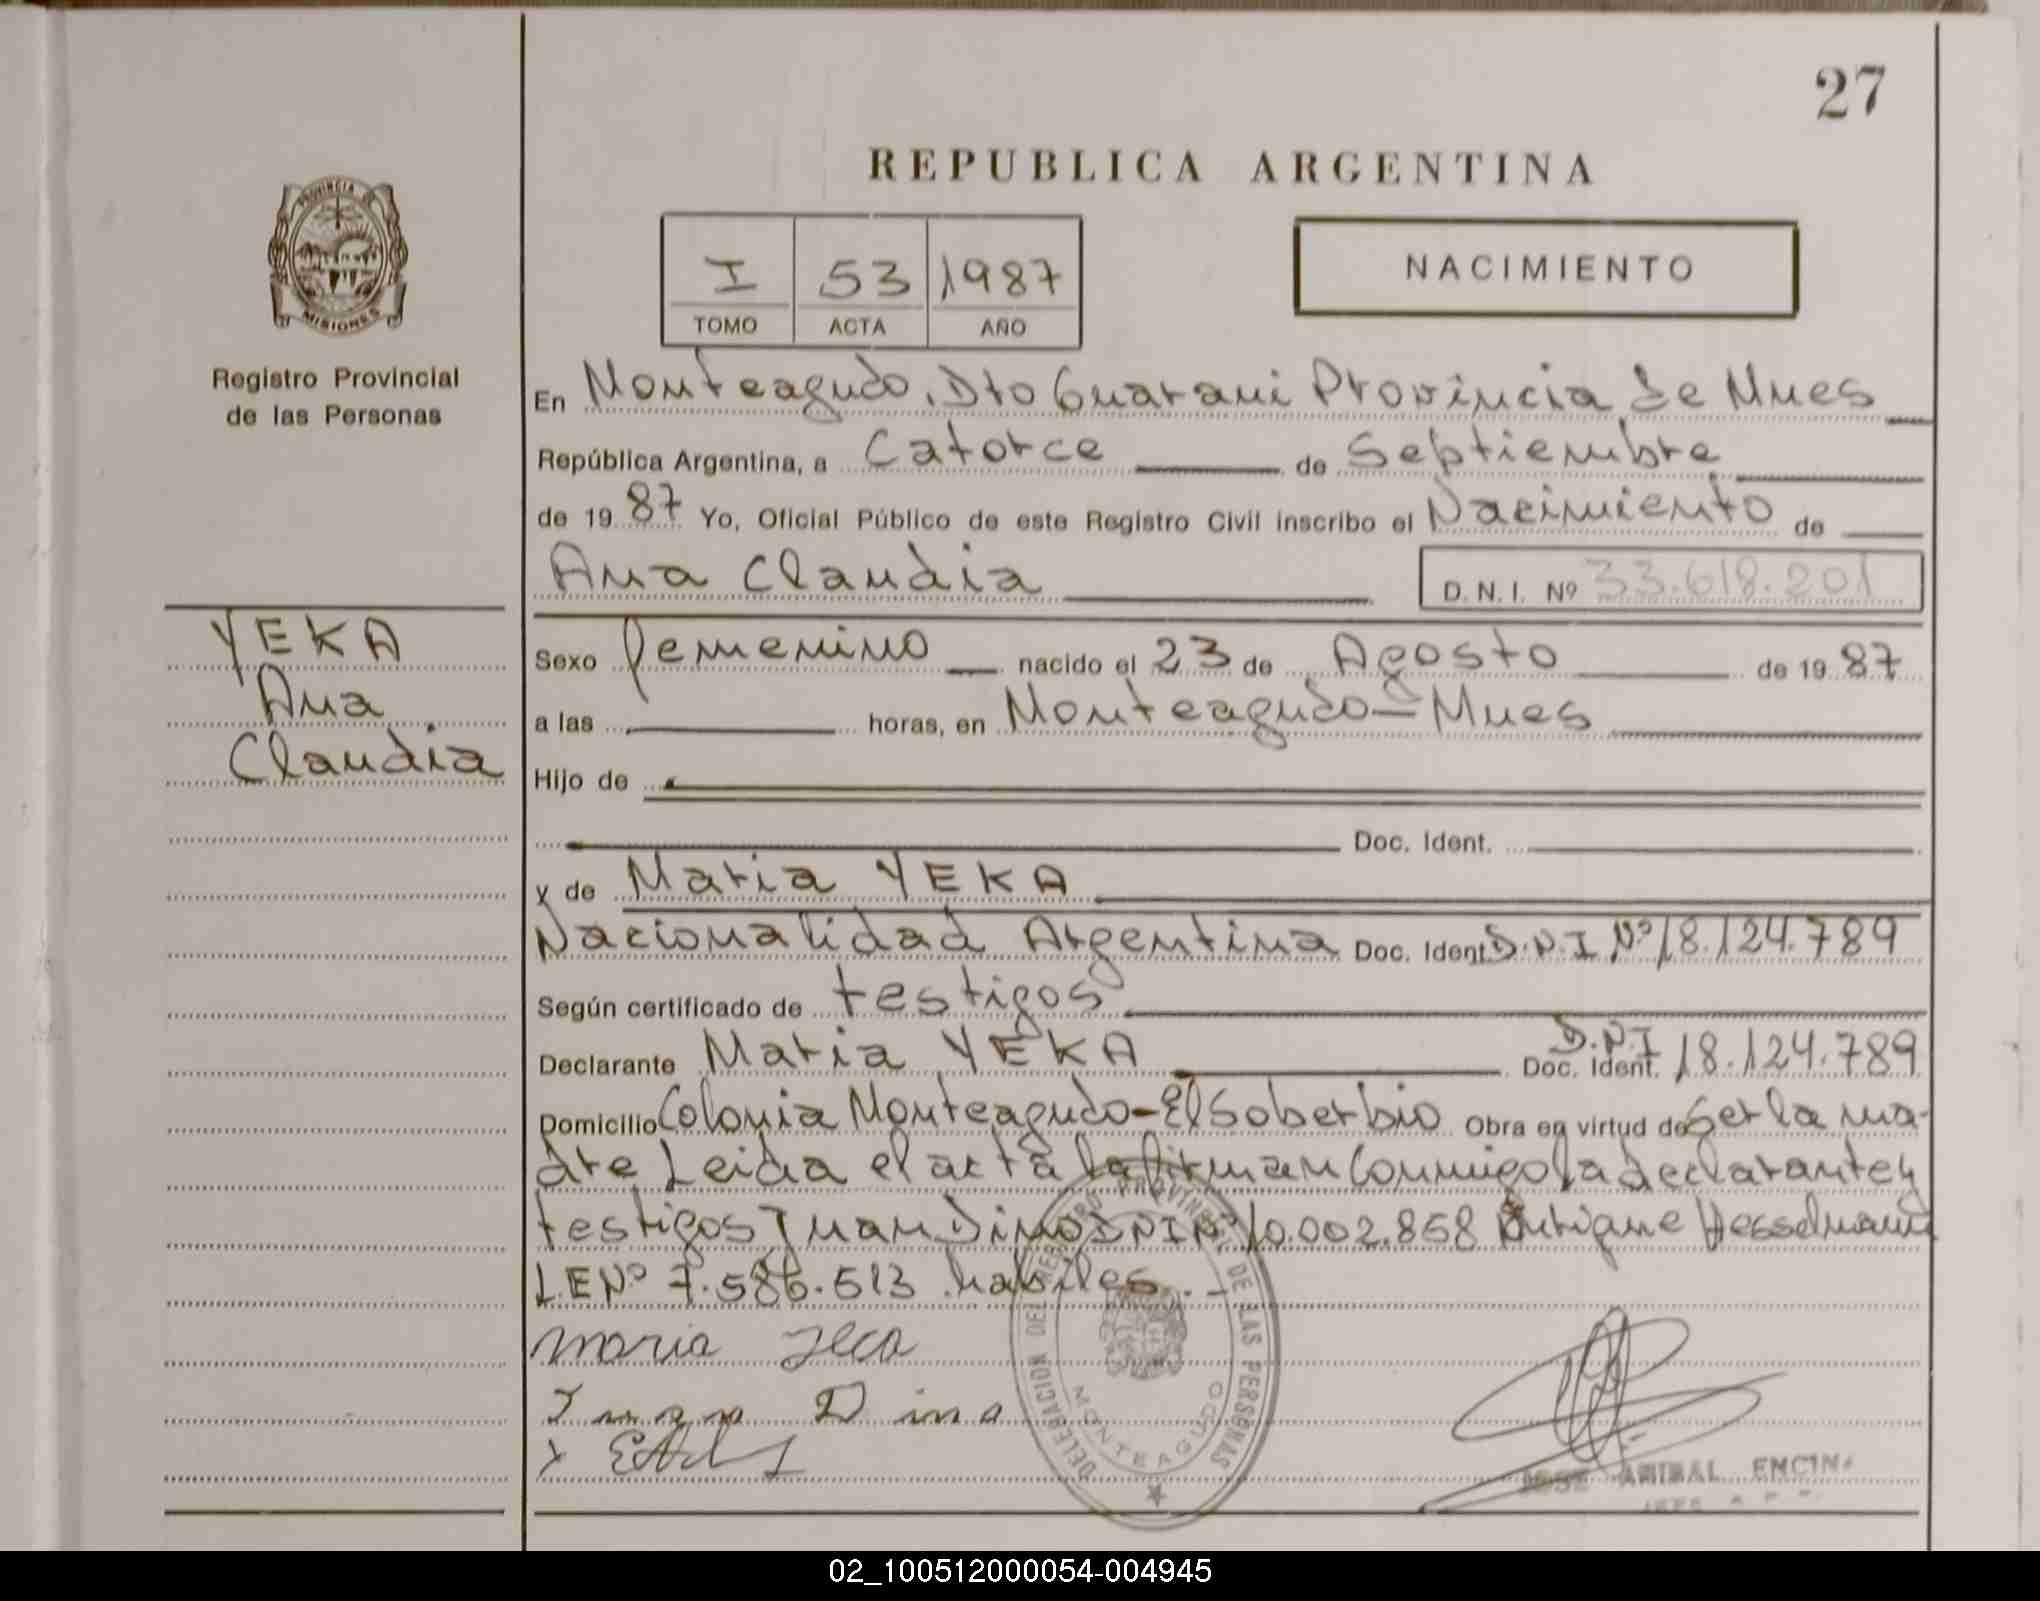 27
REPUBLICA ARGENTINA
PROVINCIA DE
MISIONES
Registro Provincial
de las Personas
I 53 1987
TOMO ACTA AÑO
NACIMIENTO
En Monteagudo, Dto Guarani Provincia de Mnes
República Argentina, a Catorce de Septiembre
de 1987 Yo, Oficial Público de este Registro Civil inscribo el Nacimiento de
Ana Claudia D.N.I. Nº 33.618.201
YEKA
Ana
Claudia
Sexo femenino nacido el 23 de Agosto de 1987
a las horas, en Monteagudo - Mnes
Hijo de
Doc. Ident.
y de Maria YEKA
Nacionalidad Argentina Doc. Ident. D.N.I Nº 18.124.789
Según certificado de testigos
Declarante Maria YEKA Doc. Ident. D.N.I 18.124.789
Domicilio Colonia Monteagudo - El Soberbio Obra en virtud de ser la ma-
dre Leida el acta la firman conmigo la declarante y
testigos Juan Dino DNI Nº 10.002.858 Enrique Hesselmann
L.E Nº 7.586.513 habiles. -
Maria Jeca
Juan Dino
x
DELEGACION DEL REGISTRO PROVINCIAL DE LAS PERSONAS
MONTEAGUDO
JOSE ANIBAL ENCINA
JEFE
02_100512000054-004945